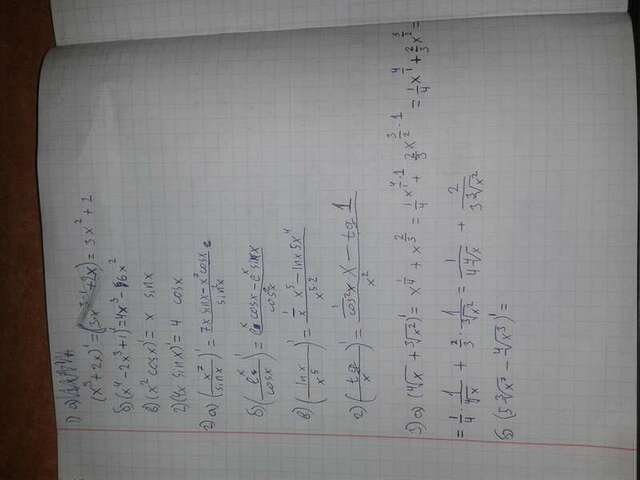 1) а)
(x³ + 2x)' = 3x² + 2
б) (x⁴ - 2x³ + 1)' = 4x³ - 6x²
в) (x² cosx)' = x sinx
г) (4x sinx)' = 4 cosx
2) а) (x²/sinx)' = (7x sinx - x² cosx)/sinx
б) (eˣ/cosx)' = (eˣ cosx - eˣ sinx)/cos²x
в) (lnx/x⁵)' = (1/x x⁵ - lnx 5x⁴)/x^5·2
г) (tg/x)' = (1/cos²x x - tg 1)/x²
3) а) (⁴√x + ³√x²)' = x^1/4 + x^2/3 = 1/4 x^1/4-1 + 2/3 x^2/3-1
= 1/4 · 1/⁴√x + 2/3 · 1/³√x² = 1/4⁴√x + 2/3³√x²
б) (5 ³√x² - ⁴√x³)' =